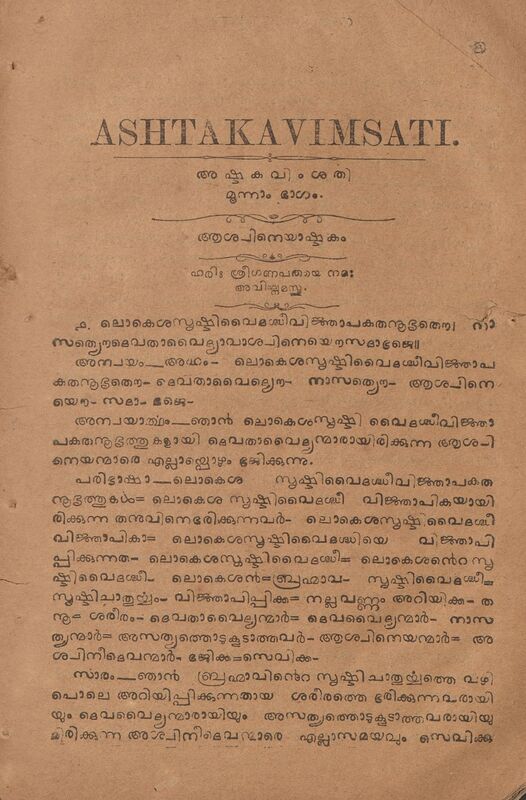 ASHTAKAVIMSATI.
അഷ്ടകവിംശതി
മൂന്നാം ഭാഗം.
ആശ്വിനെയാഷ്ടകം
ഹരിഃ ശ്രീഗണപതായ നമഃ
അവിഘ്നമസ്തു.
൧. ലൊകെശസൃഷ്ടിവൈദഗ്ദ്ധീവിജ്ഞാപകതനൂഭൃതൌ। നാ
സത്യൌദെവതാവൈദ്യാവാശ്വിനെയൌസദാഭജെ॥
അന്വയം—അഥം— ലൊകെശസൃഷ്ടിവൈദഗ്ദ്ധീവിജ്ഞാപ
കതനൂഭൃതൌ- ദെവതാവൈദ്യൌ- നാസത്യൌ- ആശ്വിനെ
യൌ- സദാ- ഭജെ-
അന്വയാൎത്ഥം—ഞാൻ ലൊകെശസൃഷ്ടി വൈദഗ്ദ്ധീവിജ്ഞാ
പകതനൂഭൃത്തുകളായി ദെവതാവൈദ്യന്മാരായിരിക്കുന്ന ആശ്വി
നെയന്മാരെ എല്ലാപ്പൊഴും ഭജിക്കുന്നു.
പരിഭാഷാ—ലൊകെശ സൃഷ്ടിവൈദഗ്ദ്ധീവിജ്ഞാപകത
നൂഭൃത്തുകൾ= ലൊകെശ സൃഷ്ടിവൈദഗ്ദ്ധീ വിജ്ഞാപികയായി
രിക്കുന്ന തനുവിനെഭരിക്കുന്നവർ- ലൊകെശസൃഷ്ടിവൈദഗ്ദ്ധീ
വിജ്ഞാപികാ= ലൊകെശസൃഷ്ടിവൈദഗ്ദ്ധിയെ വിജ്ഞാപി
പ്പിക്കുന്നത- ലൊകെശസൃഷ്ടിവൈദഗ്ദ്ധീ= ലൊകെശൻറെ സൃ
ഷ്ടിവൈദഗ്ദ്ധി- ലൊകെശൻ=ബ്രഹ്മാവ- സൃഷ്ടിവൈദഗ്ദ്ധീ=
സൃഷ്ടിചാതുൎയ്യം- വിജ്ഞാപിപ്പിക്ക= നല്ലവണ്ണം അറിയിക്ക- ത
നൂ= ശരീരം- ദെവതാവൈദ്യന്മാർ= ദെവവൈദ്യന്മാർ- നാസ
ത്യന്മാർ= അസത്യത്തൊടകൂടാത്തവർ- ആശ്വിനെയന്മാർ= അ
ശ്വിനീദെവന്മാർ- ഭജിക്ക=സെവിക്ക-
സാരം—ഞാൻ ബ്രഹ്മാവിൻറെ സൃഷ്ടിചാതുൎയ്യത്തെ വഴി
പൊലെ അറിയിപ്പിക്കുന്നതായ ശരീരത്തെ ഭരിക്കുന്നവരായി
യും ദെവവൈദ്യന്മാരായിയും അസത്യത്തൊടകൂടാത്തവരായിയു
മിരിക്കുന്ന അശ്വിനീദെവന്മാരെ എല്ലാസമയവും സെവിക്കു